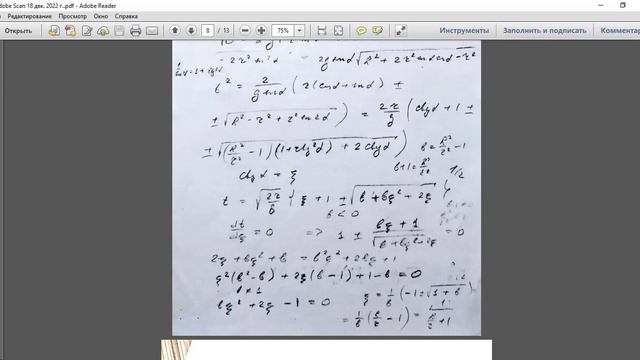 dobe Scan 18 дек. 2022 г..pdf - Adobe Reader
Редактирование Просмотр Окно Справка
Открыть 8 / 13 75% Инструменты Заполнить и подписать Комментари
t² = 2/(g sin α) (r(cos α + sin α) ±
± √(R² - r² + r² sin 2α)) = 2r/g (ctg α + 1 ±
± √((R²/r² - 1)(1 + ctg² α) + 2ctg α)) b = R²/r² - 1
b+1 = R²/r²
ctg α = ξ
t = √(2r/g) {ξ + 1 ± √(b + bξ² + 2ξ)}^1/2
b < 0
dt/dξ = 0 => 1 ± (bξ + 1)/√(b + bξ² + 2ξ) = 0
2ξ + bξ² + b = b²ξ² + 2bξ + 1
ξ²(b² - b) + 2ξ(b - 1) + 1 - b = 0
b ≠ 1
bξ² + 2ξ - 1 = 0 ξ = 1/b (-1 ± √(1 + b))
= 1/b (R/r - 1) = 1/(R/r + 1)